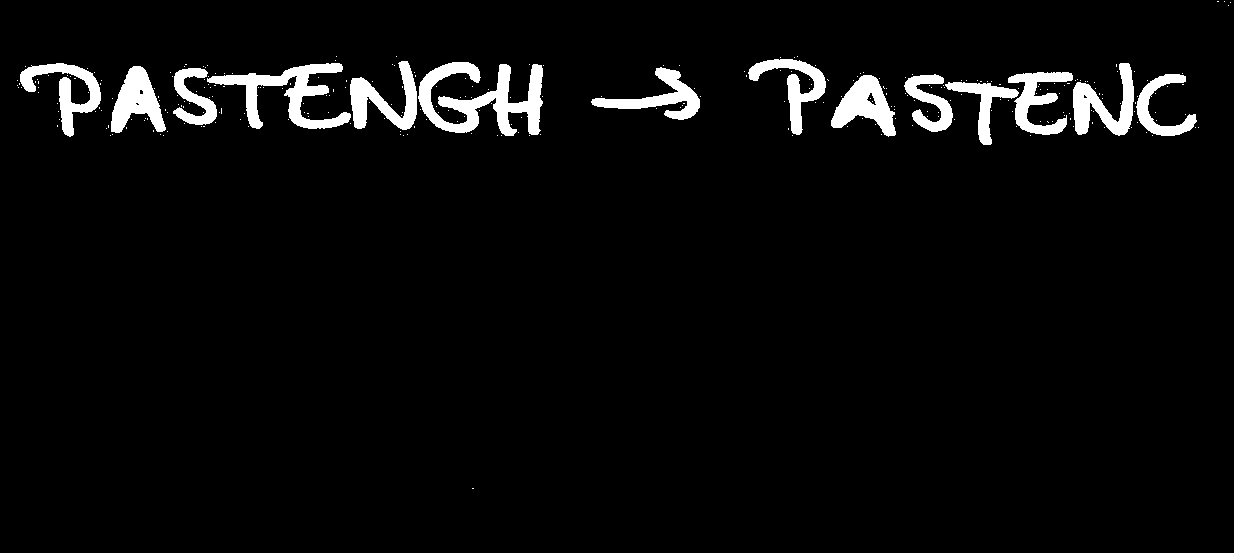 PASTENGH → PASTENC